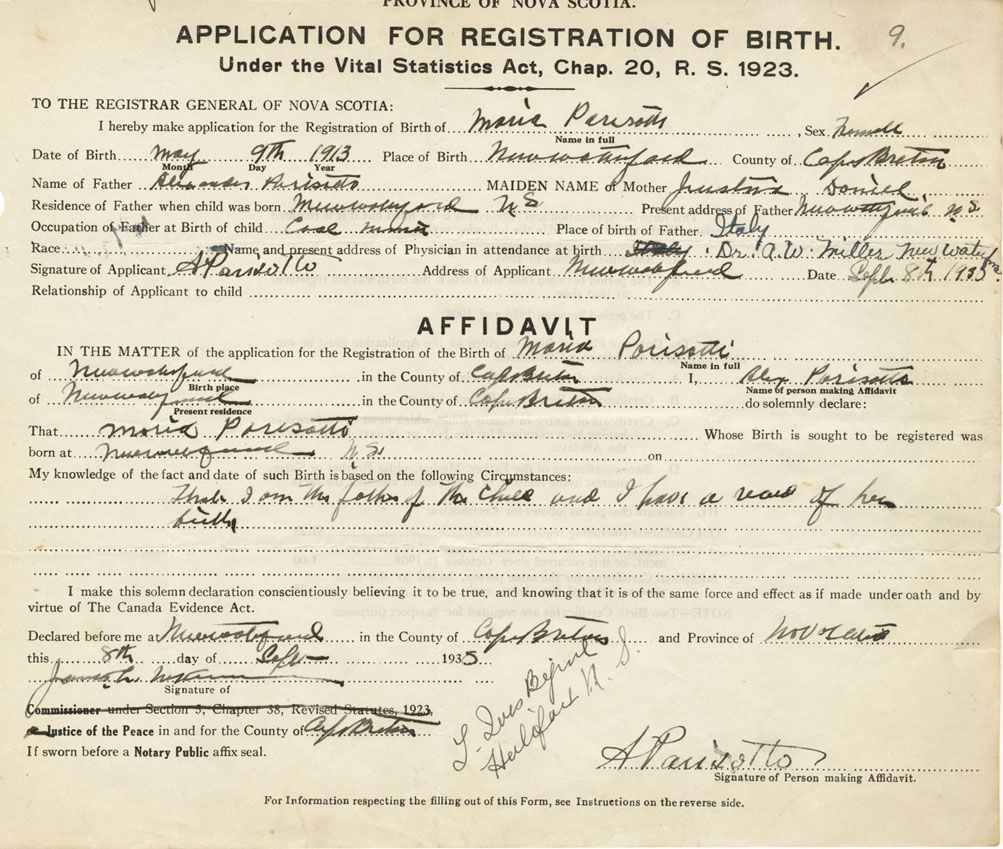 PROVINCE OF NOVA SCOTIA.
APPLICATION FOR REGISTRATION OF BIRTH. 9.
Under the Vital Statistics Act, Chap. 20, R. S. 1923.
TO THE REGISTRAR GENERAL OF NOVA SCOTIA:
I hereby make application for the Registration of Birth of Maria Parisotti, Sex
Name in full
Date of Birth May 9th 1913 Place of Birth Newwaterford County of Cape Breton
Month Day Year
Name of Father Alexander Parisotto MAIDEN NAME of Mother Daniel
Residence of Father when child was born Newwaterford N S Present address of Father Newwaterford N S
Occupation of Father at Birth of child Coal Place of birth of Father Italy
Race Name and present address of Physician in attendance at birth Italy Dr. A. W. Miller New Waterford
Signature of Applicant A Parisotto Address of Applicant Newwaterford Date Sept 8th 1935
Relationship of Applicant to child
AFFIDAVIT
IN THE MATTER of the application for the Registration of the Birth of Maria Parisotti
Name in full
of Newwaterford in the County of Cape Breton I, Alex Parisotto
Birth place Name of person making Affidavit
of Newwaterford in the County of Cape Breton do solemnly declare:
Present residence
That Maria Parisotti Whose Birth is sought to be registered was
born at Newwaterford N S. on
My knowledge of the fact and date of such Birth is based on the following Circumstances:
That I am the father of the child and I have a record of her
birth
I make this solemn declaration conscientiously believing it to be true, and knowing that it is of the same force and effect as if made under oath and by
virtue of The Canada Evidence Act.
Declared before me at Newwaterford in the County of Cape Breton and Province of Nova Scotia
this 8th day of Sept 1935
Signature of
Commissioner under Section 5, Chapter 38, Revised Statutes, 1923,
a Justice of the Peace in and for the County of Cape Breton
If sworn before a Notary Public affix seal.
Halifax N. S.
A Parisotto
Signature of Person making Affidavit.
For Information respecting the filling out of this Form, see Instructions on the reverse side.